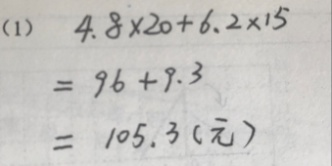 (1) 4.8×20+6.2×15
= 96+9.3
= 105.3(元)